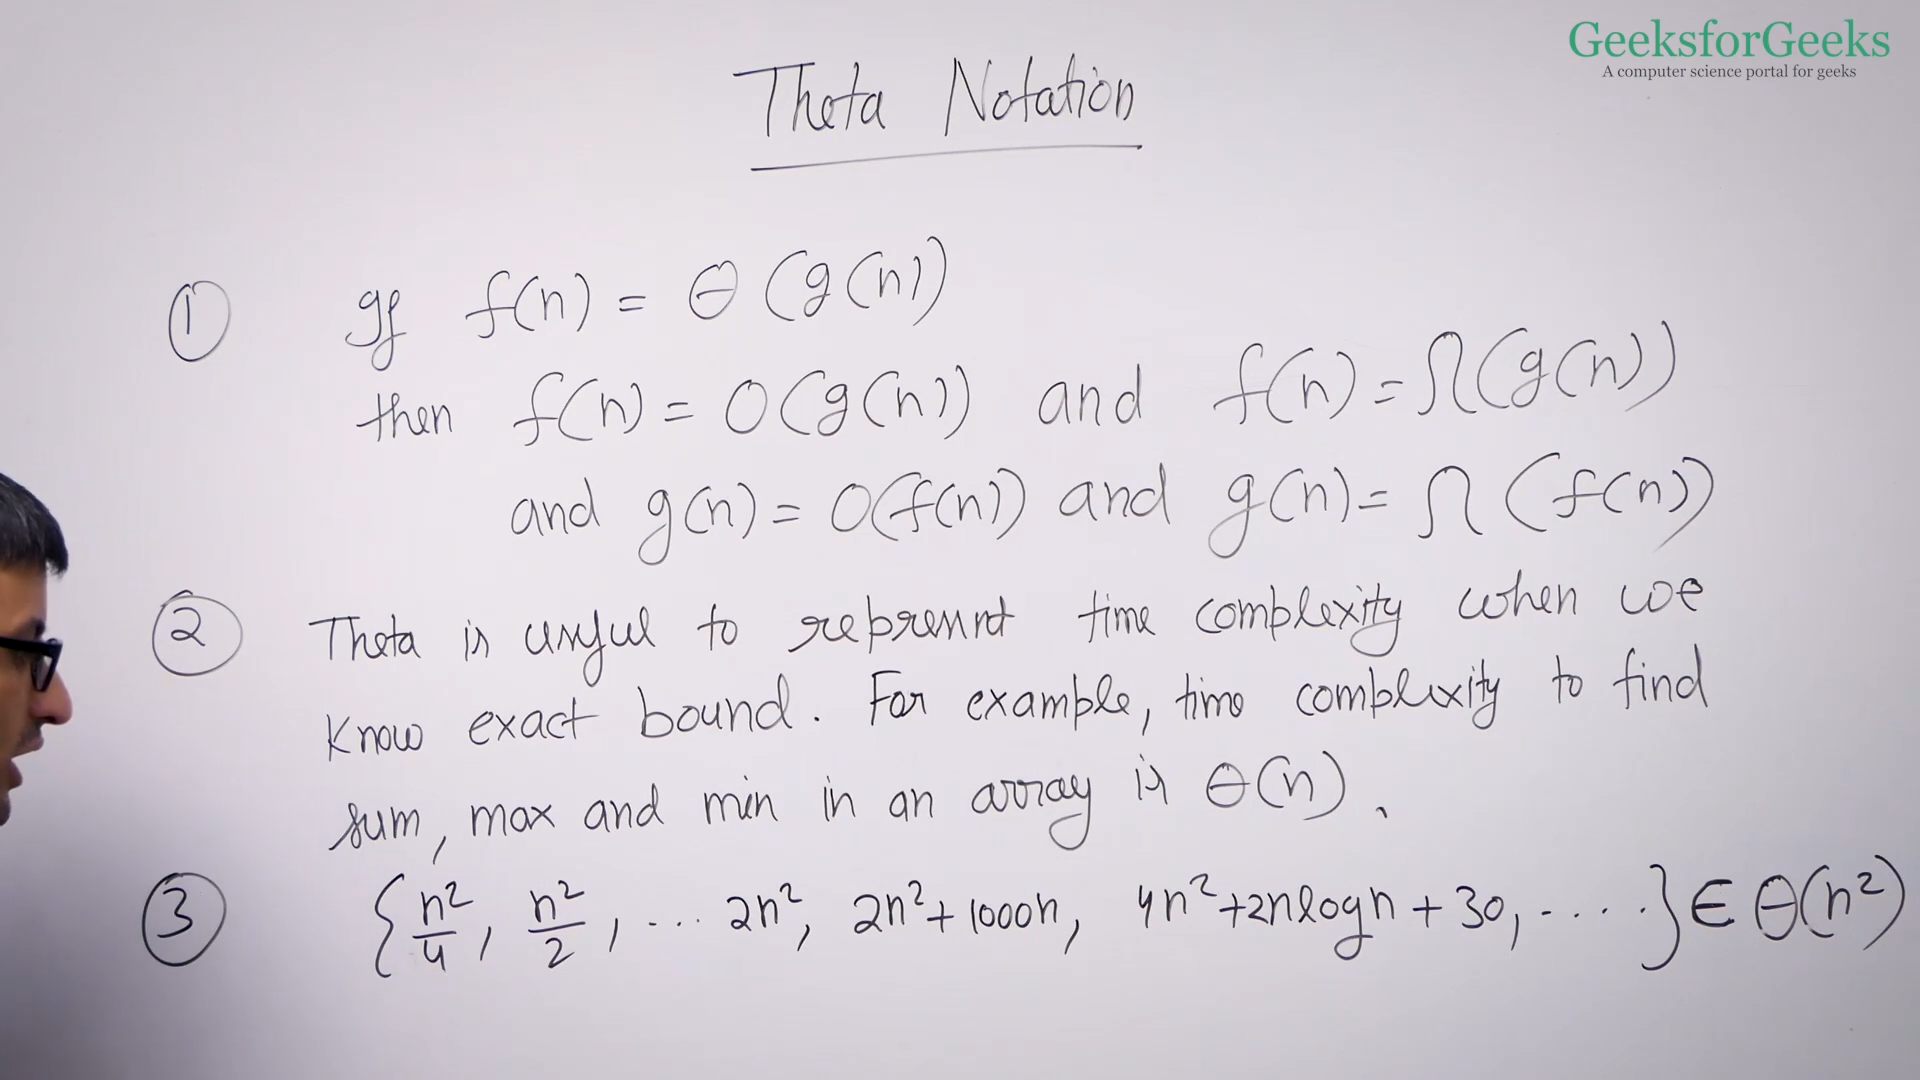 GeeksforGeeks
A computer science portal for geeks
Theta Notation
① If f(n) = Θ(g(n))
then f(n) = O(g(n)) and f(n) = Ω(g(n))
and g(n) = O(f(n)) and g(n) = Ω(f(n))
② Theta is useful to represent time complexity when we
know exact bound. For example, time complexity to find
sum, max and min in an array is Θ(n).
③ {n²/4, n²/2, ... 2n², 2n²+1000n, 4n²+2nlogn+30, .....} ∈ Θ(n²)